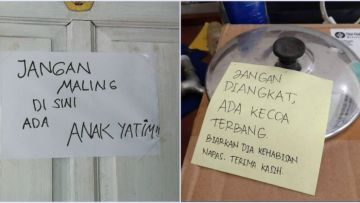 JANGAN
MALING
DI SINI
ADA
ANAK YATIM!!
JANGAN
DIANGKAT,
ADA KECOA
TERBANG.
BIARKAN DIA KEHABISAN
NAPAS. TERIMA KASIH.